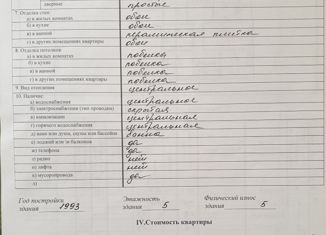 дверные простые
7. Отделка стен:
а) в жилых комнатах обои
б) в кухне обои
в) в ванной керамическая плитка
г) в других помещениях квартиры обои
8. Отделка потолков
а) в жилых комнатах побелка
б) в кухне побелка
в) в ванной побелка
г) в других помещениях квартиры побелка
9. Вид отопления центральное
10. Наличие:
а) водоснабжения центральное
б) электроснабжения (тип проводки) скрытая
в) канализации центральная
г) горячего водоснабжения центральное
д) ванн или душа, сауны или бассейна ванна
е) лоджий или балконов да
ж) телефона да
з) радио нет
и) лифта нет
к) мусоропровода да
л)
Год постройки Этажность Физический износ
здания 1993 здания 5 здания 5
IV.Стоимость квартиры